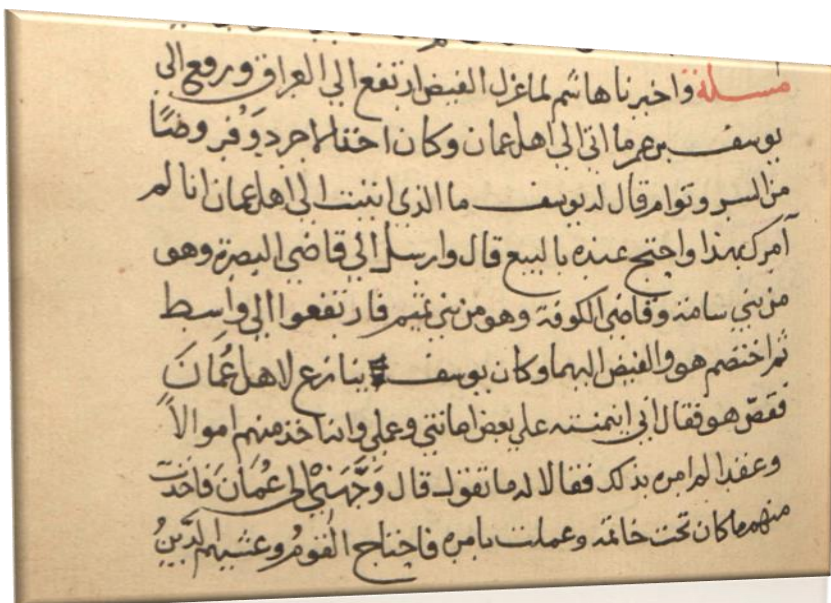 مسئلة واخبرنا هاشم لما عزل الفيض ارتفع الى العراق ورفع الى
يوسف بن عمر ما اتى الى اهل عمان وكان اخذ
من السر وتوام قال له يوسف ما الذي اتيت الى اهل عمان انا لم
آمرك بهذا واحتج عنده بالبيع قال وارسل الى قاضي البصرة وهو
من بني سامة وقاضي الكوفة وهو من بني تميم فارتفعوا الى واسط
ثم اختصم هو والفيض اليهما وكان يوسف ينازع لاهل عُمَانَ
فقصّ هو فقال اني ايتمنته على بعض امانتي وعملي وانه اخذ منهم اموالاً
وعقدا لم امره بذلك فقالا له ما تقول قال وَجَّهَنِي الى عُمَانَ فاخذت
منهم ما كان تحت خاتمه وعملت بامره فاحتاج القومُ وغشيهم الدَّينُ